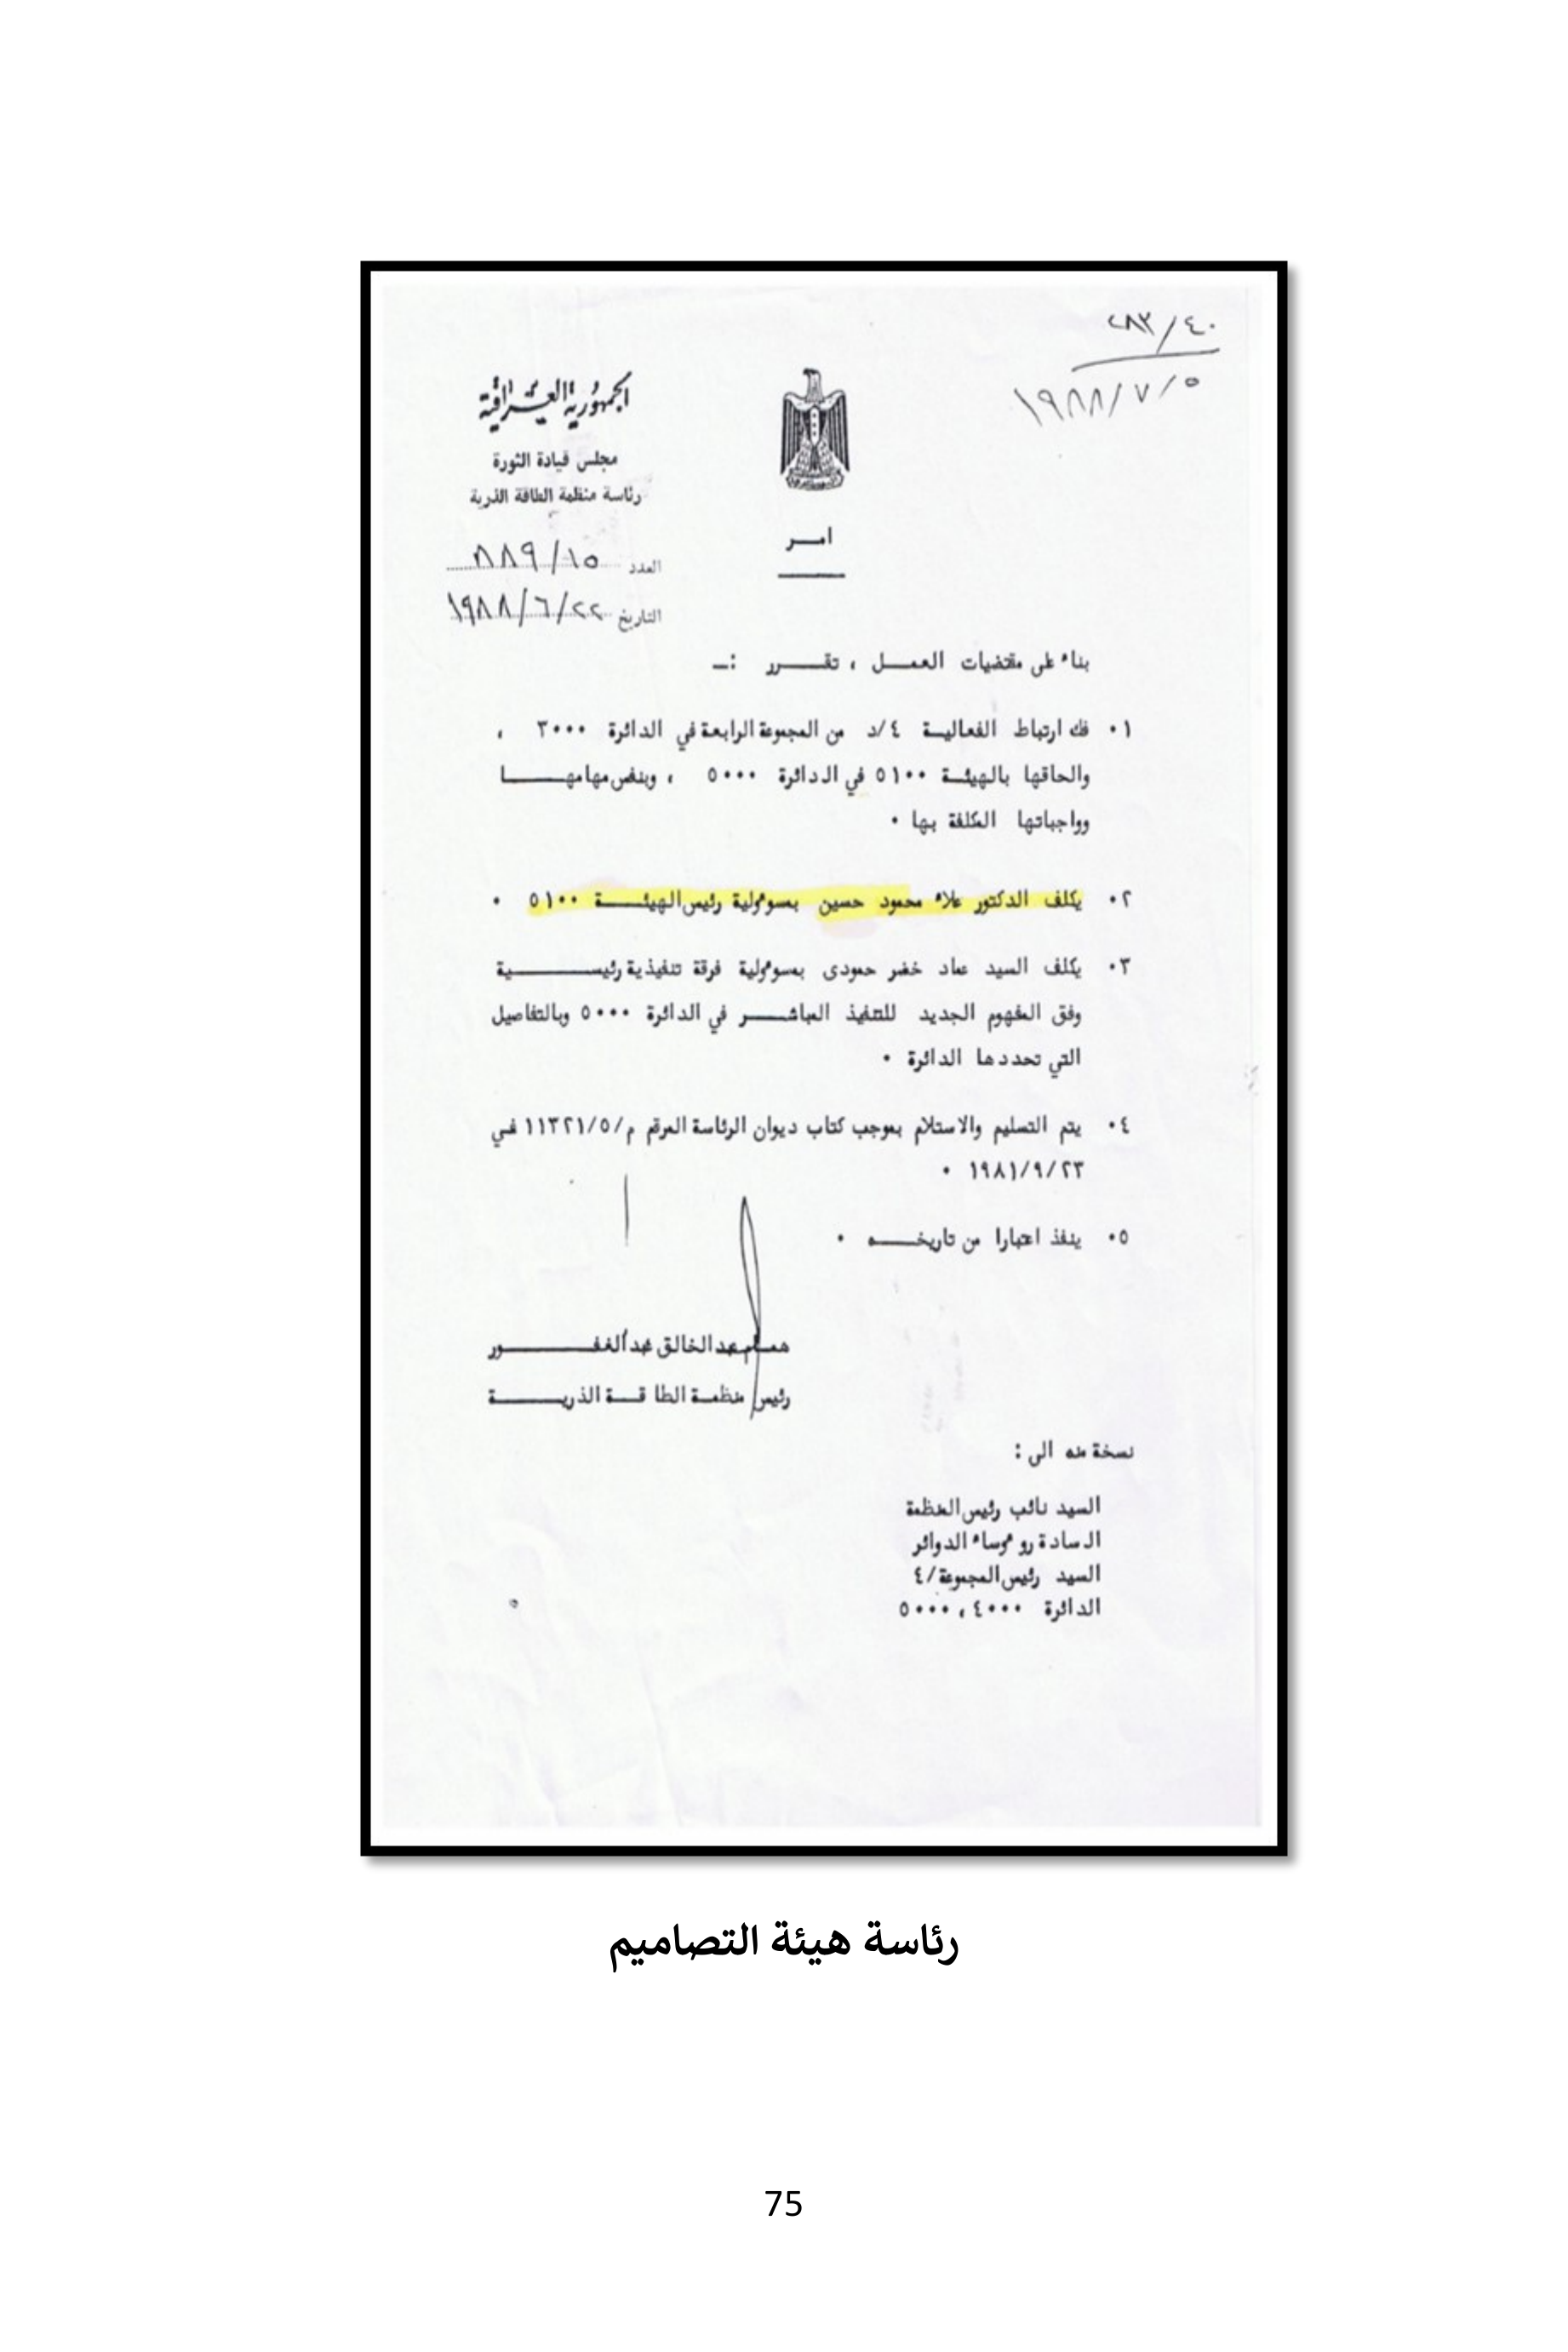 ٢٨٣/٤٠
١٩٨٨/٧/٥
الجمهورية العراقية
مجلس قيادة الثورة
رئاسة منظمة الطاقة الذرية
العدد ٨٨٩/١٥
التاريخ ١٩٨٨/٦/٢٢
امـــر
بناء على مقتضيات العمـــل ، تقـــرر :ـ
٠١ فك ارتباط الفعاليــة ٤/د من المجموعة الرابعة في الدائرة ٣٠٠٠ ،
والحاقها بالهيئــة ٥١٠٠ في الدائرة ٥٠٠٠ ، وبنفس مهامهــــا
وواجباتها المكلفة بها ٠
٠٢ يكلف الدكتور علاء محمود حسين بمسوءولية رئيس الهيئــــة ٥١٠٠ ٠
٠٣ يكلف السيد عماد خضر حمودى بمسوءولية فرقة تنفيذية رئيســــــية
وفق المفهوم الجديد للتنفيذ المباشـــر في الدائرة ٥٠٠٠ وبالتفاصيل
التي تحددها الدائرة ٠
٠٤ يتم التسليم والاستلام بموجب كتاب ديوان الرئاسة المرقم م/٥/١١٣٢١ في
١٩٨١/٩/٢٣ ٠
٠٥ ينفذ اعتبارا من تاريخــــه ٠
همــام عبد الخالق عبد الغفــــــور
رئيس منظمــة الطاقــة الذريـــــة
نسخة منه الى :
السيد نائب رئيس المنظمة
السادة روءوساء الدوائر
السيد رئيس المجموعة/٤
الدائرة ٤٠٠٠ ، ٥٠٠٠
رئاسة هيئة التصاميم
75